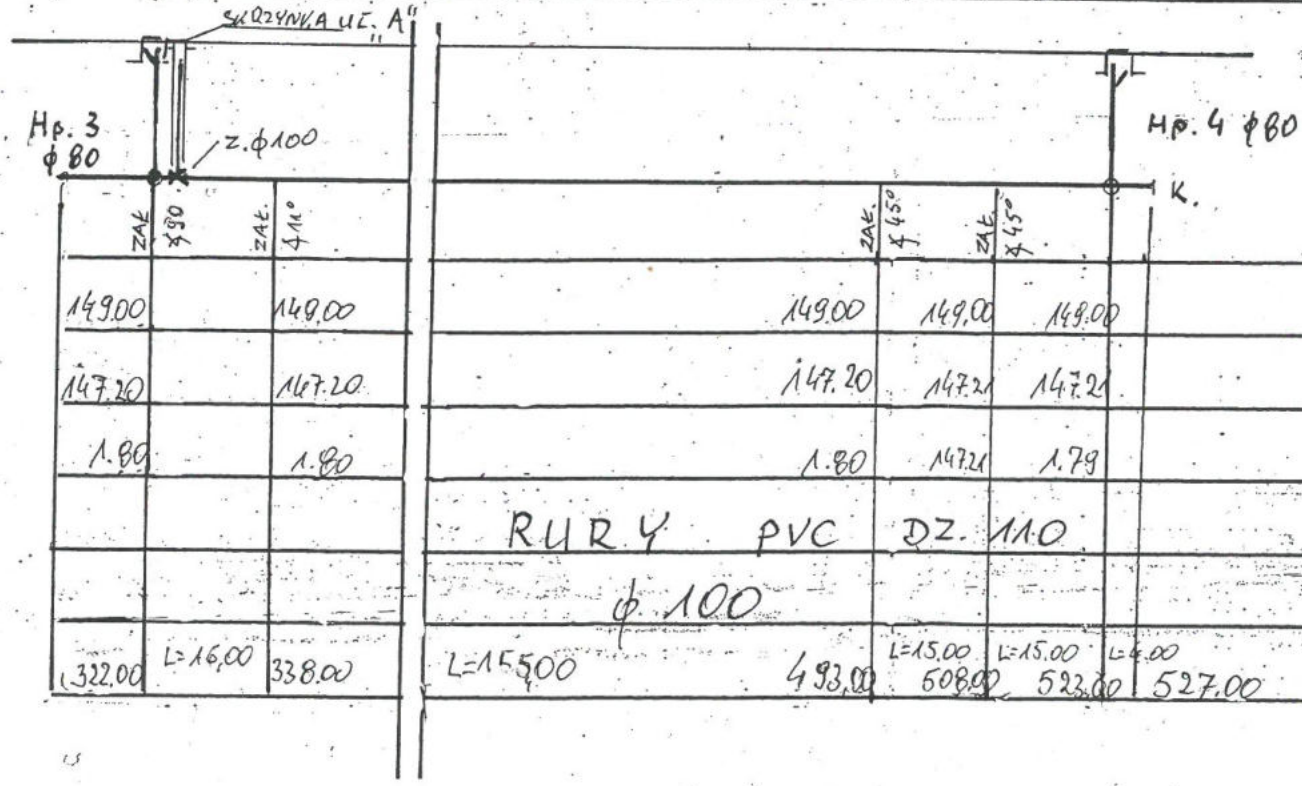 SKRZYNKA UL. "A"
Hp. 3
ϕ 80
z. ϕ100
Hp. 4 ϕ80
K.
ZAŁ. ∢90
ZAŁ. ∢11°
ZAŁ. ∢45°
ZAŁ. ∢45°
149.00 149.00 149.00 149.00 149.00
147.20 147.20 147.20 147.21 147.21
1.80 1.80 1.80 147.21 1.79
RURY PVC DZ. 110
ϕ 100
L=16,00 L=155,00 L=15.00 L=15.00 L=4.00
322.00 338.00 493,00 508,00 523,00 527.00